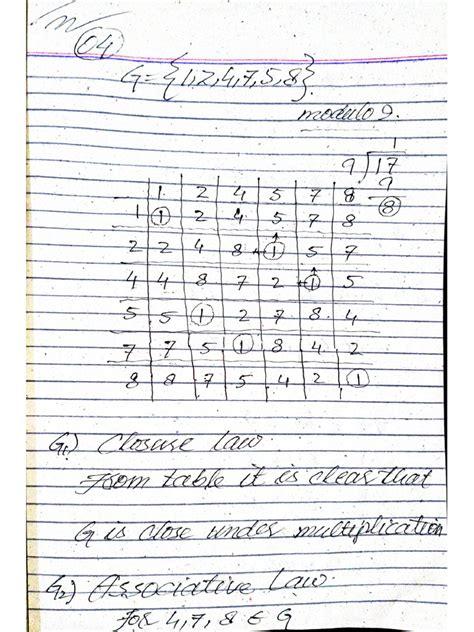 04
G = {1,2,4,7,5,8}.
modulo 9.
1
9)17
9
8
1 2 4 5 7 8
1 1 2 4 5 7 8
2 2 4 8 1 5 7
4 4 8 7 2 1 5
5 5 1 2 7 8 4
7 7 5 1 8 4 2
8 8 7 5 4 2 1
G1) Closure Law.
From table it is clear that
G is close under multiplication
G2) Associative Law.
for 4,7,8 ∈ G